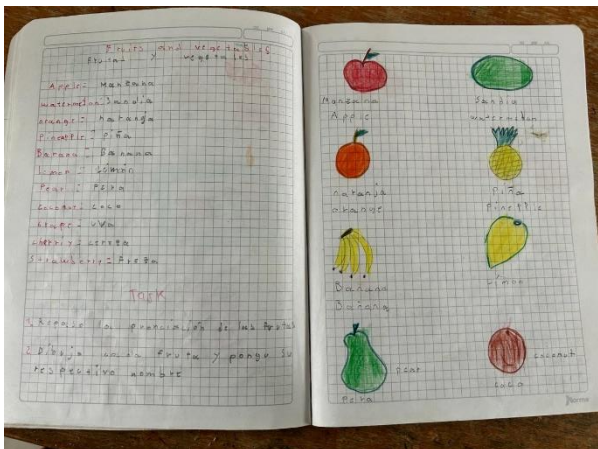 Fruits and vegetables
Frutas y vegetales
Apple: Manzana
watermelon: Sandía
orange: naranja
Pineapple: piña
Banana: Banana
limon: Limón
Pear: Pera
coconut: coco
Grape: uva
cherry: cereza
Strawberry: Fresa
Task
1. Repaso la pronunciación de las frutas
2. Dibujo cada fruta y pongo su
respectivo nombre
Manzana
Apple
Sandía
watermelon
naranja
orange
Piña
Banana
Banana
Limon
pear
Pera
coconut
coco
norma